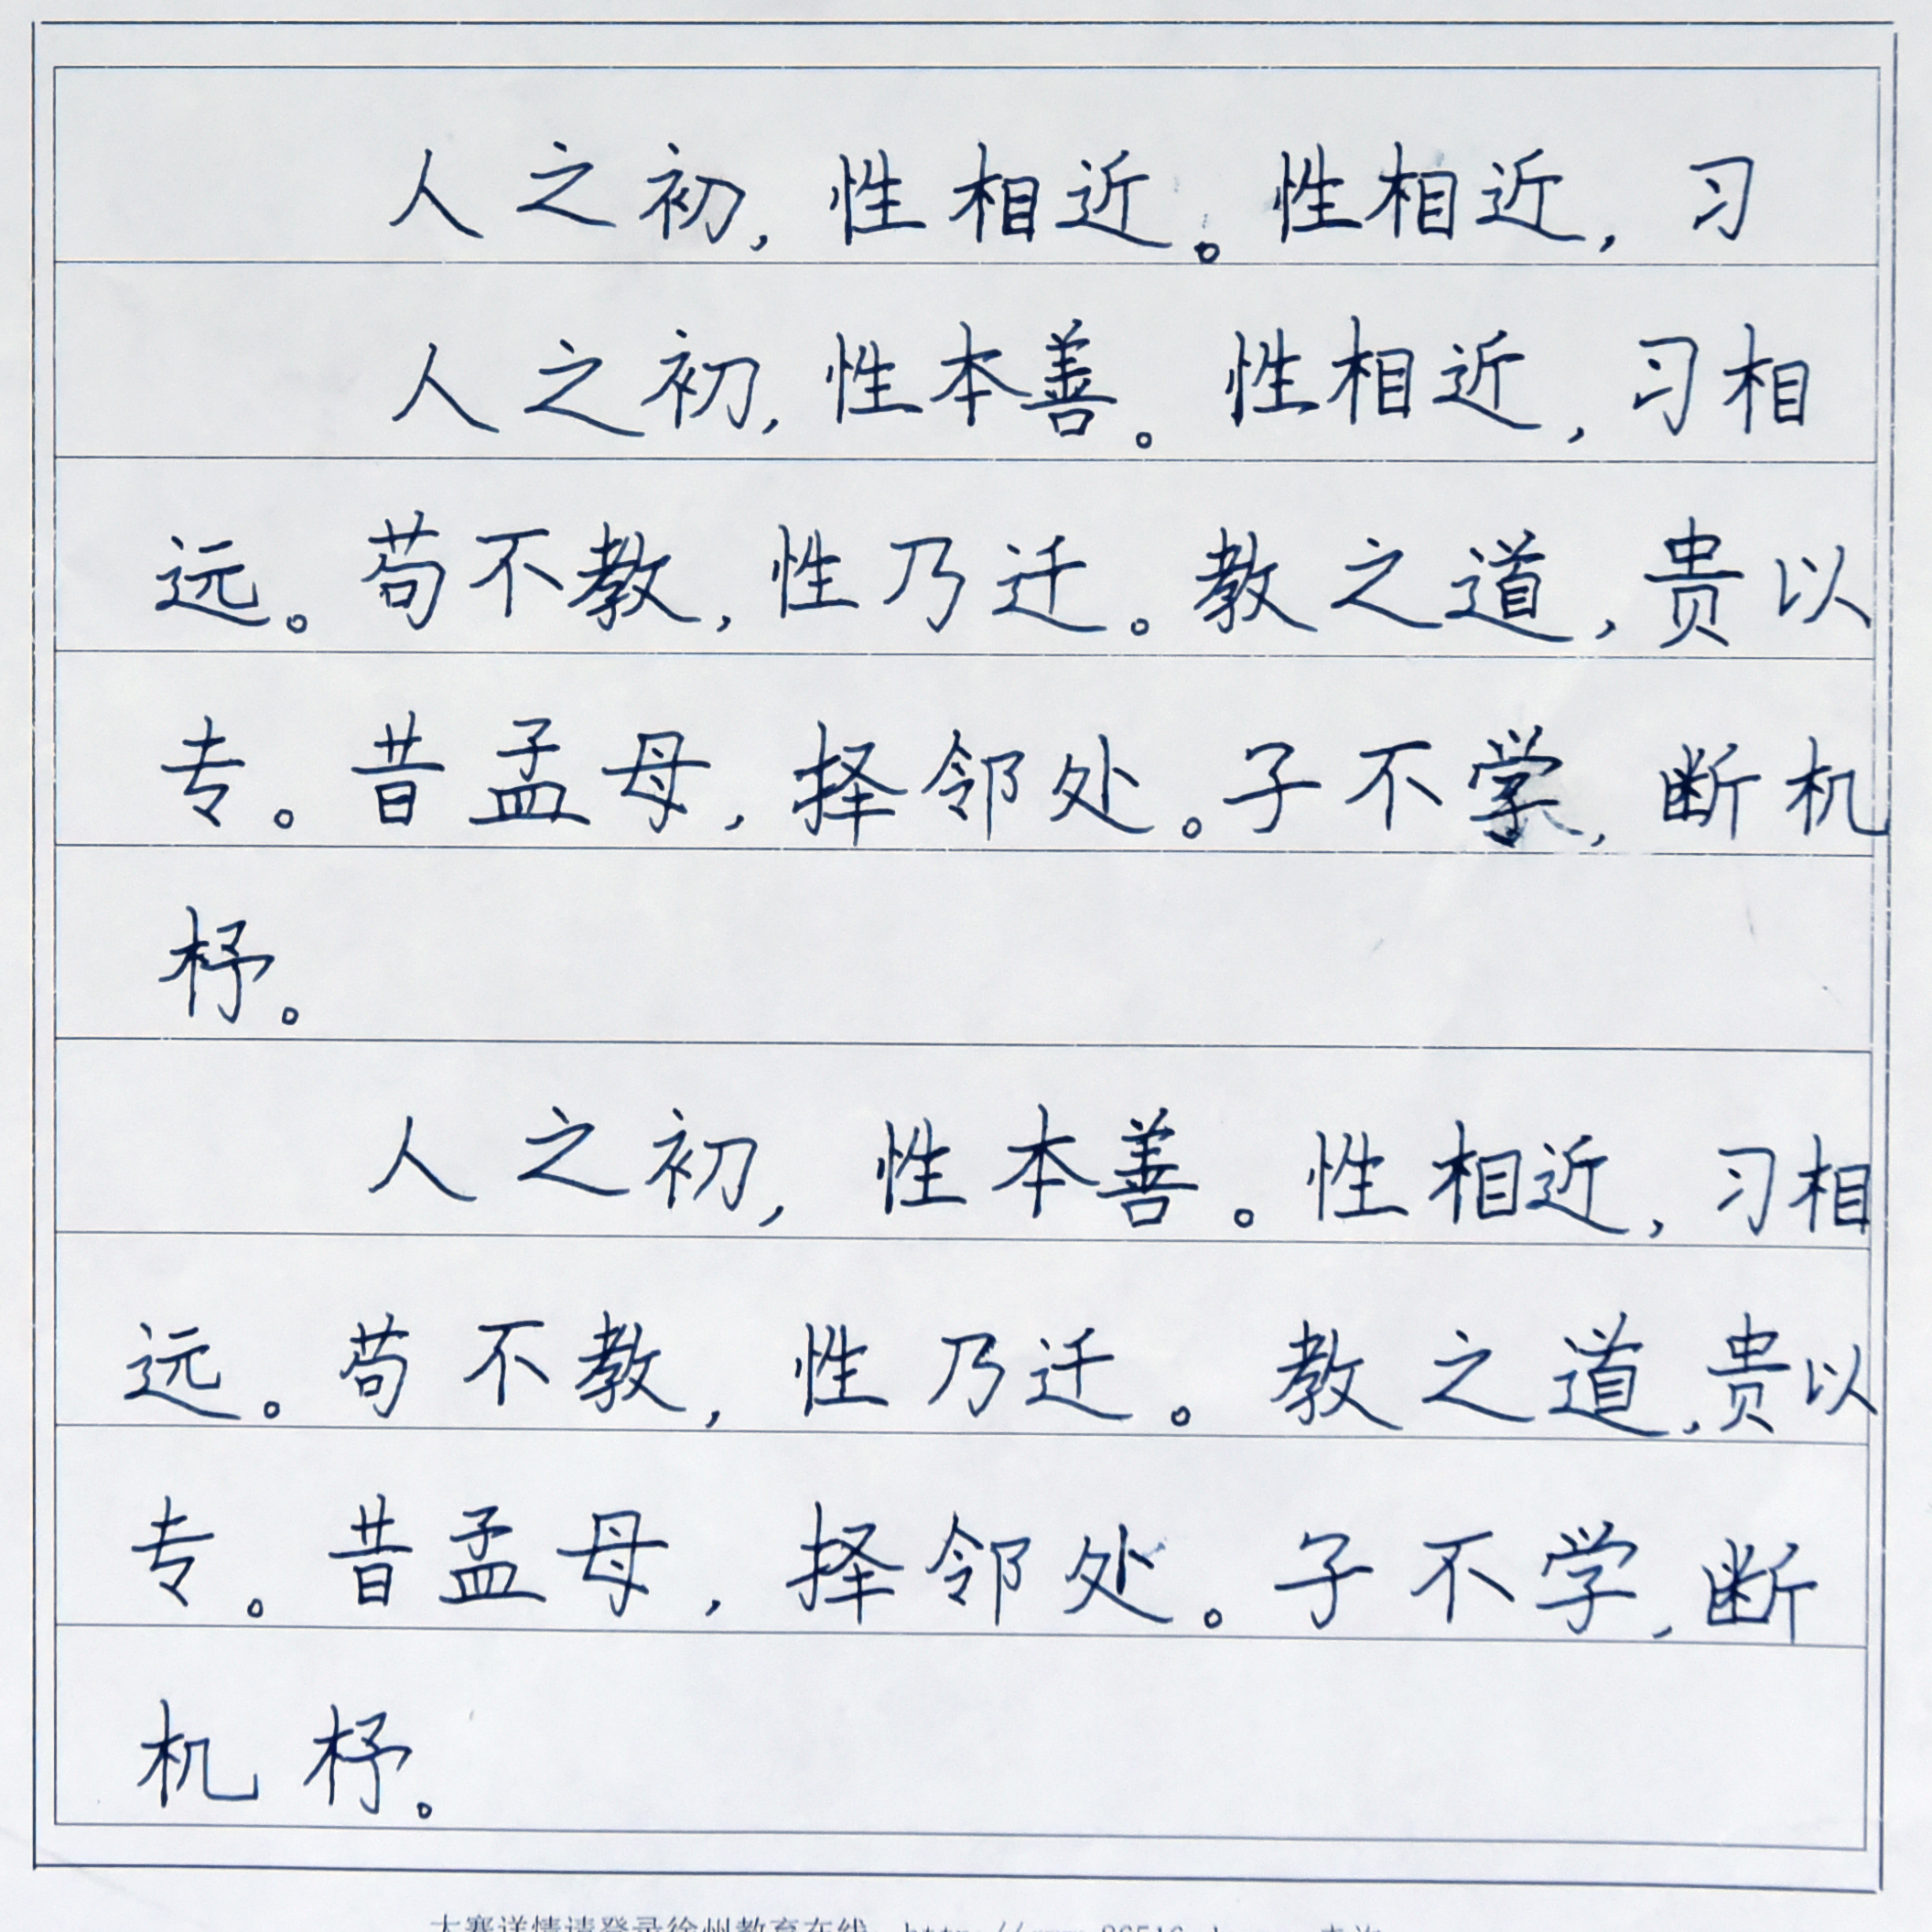 人之初，性相近。性相近，习
人之初，性本善。性相近，习相
远。苟不教，性乃迁。教之道，贵以
专。昔孟母，择邻处。子不学，断机
杼。
人之初，性本善。性相近，习相
远。苟不教，性乃迁。教之道，贵以
专。昔孟母，择邻处。子不学，断
机杼。
大赛详情请登录徐州教育在线